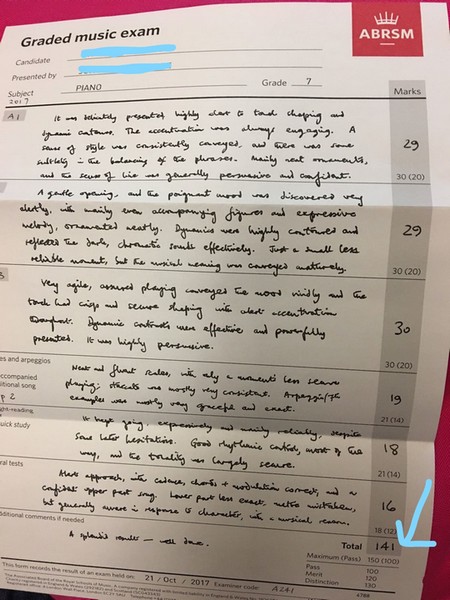 Graded music exam
ABRSM
Candidate
Presented by
Subject PIANO Grade 7
2017
Marks
A1
It was delicately presented, highly alert to touch shaping and
dynamic contours. The accentuation was always engaging. A
sense of style was consistently conveyed, and there was some
subtlety in the balancing of the phrases. Mainly neat ornaments,
and the sense of line was generally persuasive and confident.
29
30 (20)
A gentle opening, and the poignant mood was discovered very
alertly, with mainly even accompanying figures and expressive
melody, ornamented neatly. Dynamics were highly contoured and
reflected the dark, chromatic sounds effectively. Just a small less
reliable moment, but the musical meaning was conveyed maturely.
29
30 (20)
Very agile, assured playing conveyed the mood vividly and the
touch had crisp and secure shaping with alert accentuation
throughout. Dynamic contrasts were effective and powerfully
presented. It was highly persuasive.
30
30 (20)
es and arpeggios
companied
itional song
p 2
Neat and fluent scales, with only a moment's less secure
playing; staccato was mostly very consistent. Arpeggio/7th
examples was mostly very graceful and exact.
19
21 (14)
ght-reading
uick study
It kept going expressively and mainly reliably, despite
some later hesitations. Good rhythmic control, most of the
way, and the tonality was largely secure.
18
21 (14)
ral tests
Alert approach, with cadence, chords + modulation correct, and a
confident upper part song. Lower part less exact, metre mistaken,
but generally aware in response to character, with a musical reason.
16
18 (12)
dditional comments if needed
A splendid result – well done.
Total 141
Maximum (Pass) 150 (100)
Pass 100
Merit 120
Distinction 130
This form records the result of an exam held on 21 / Oct / 2017 Examiner code A241